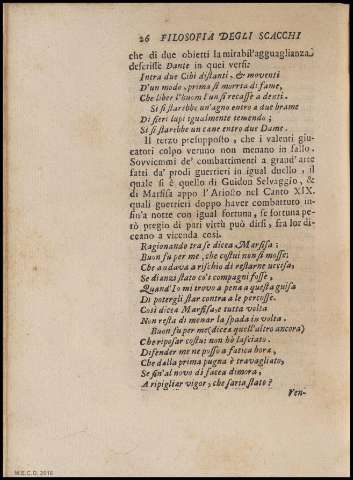 26 FILOSOFIA DEGLI SCACCHI
che di due obietti la mirabil'agguaglianza
descrisse Dante in quei versi:
Intra due Cibi distanti, & moventi
D'un modo, prima si morria di fame,
Che liber l'huom l'un si recasse a denti.
Si si starebbe un'agno entro a due brame
Di fieri lupi igualmente temendo;
Si si starebbe un cane entro due Dame.
Il terzo presupposto, che i valenti giu-
catori colpo veruno non menano in fallo.
Sovviemmi de' combattimenti a grand' arte
fatti da' prodi guerrieri in igual duello, il
quale si è quello di Guidon Selvaggio, &
di Marfisa appo l'Ariosto nel Canto XIX.
quali guerrieri doppo haver combattuto in-
sin'a notte con igual fortuna, se fortuna pe-
rò pregio di pari virtù può dirsi, fra lor di-
ceano a vicenda così.
Ragionando tra se dicea Marfisa:
Buon fu per me, che costui non si mosse;
Che andava a rischio di restarne uccisa,
Se dianzi stato co's compagni fosse,
Quand'Io mi trovo a pena a questa guisa
Di potergli star contra a le percosse.
Così dicea Marfisa, e tutta volta
Non resta di menar la spada in volta.
Buon fu per me (dicea quell'altro ancora)
Che riposar costui non hò lasciato.
Difender me ne posso a fatica hora,
Che dalla prima pugna è travagliato,
Se sin'al novo dì facea dimora,
A ripigliar vigor, che saria stato?
Ven-
M.E.C.D. 2016